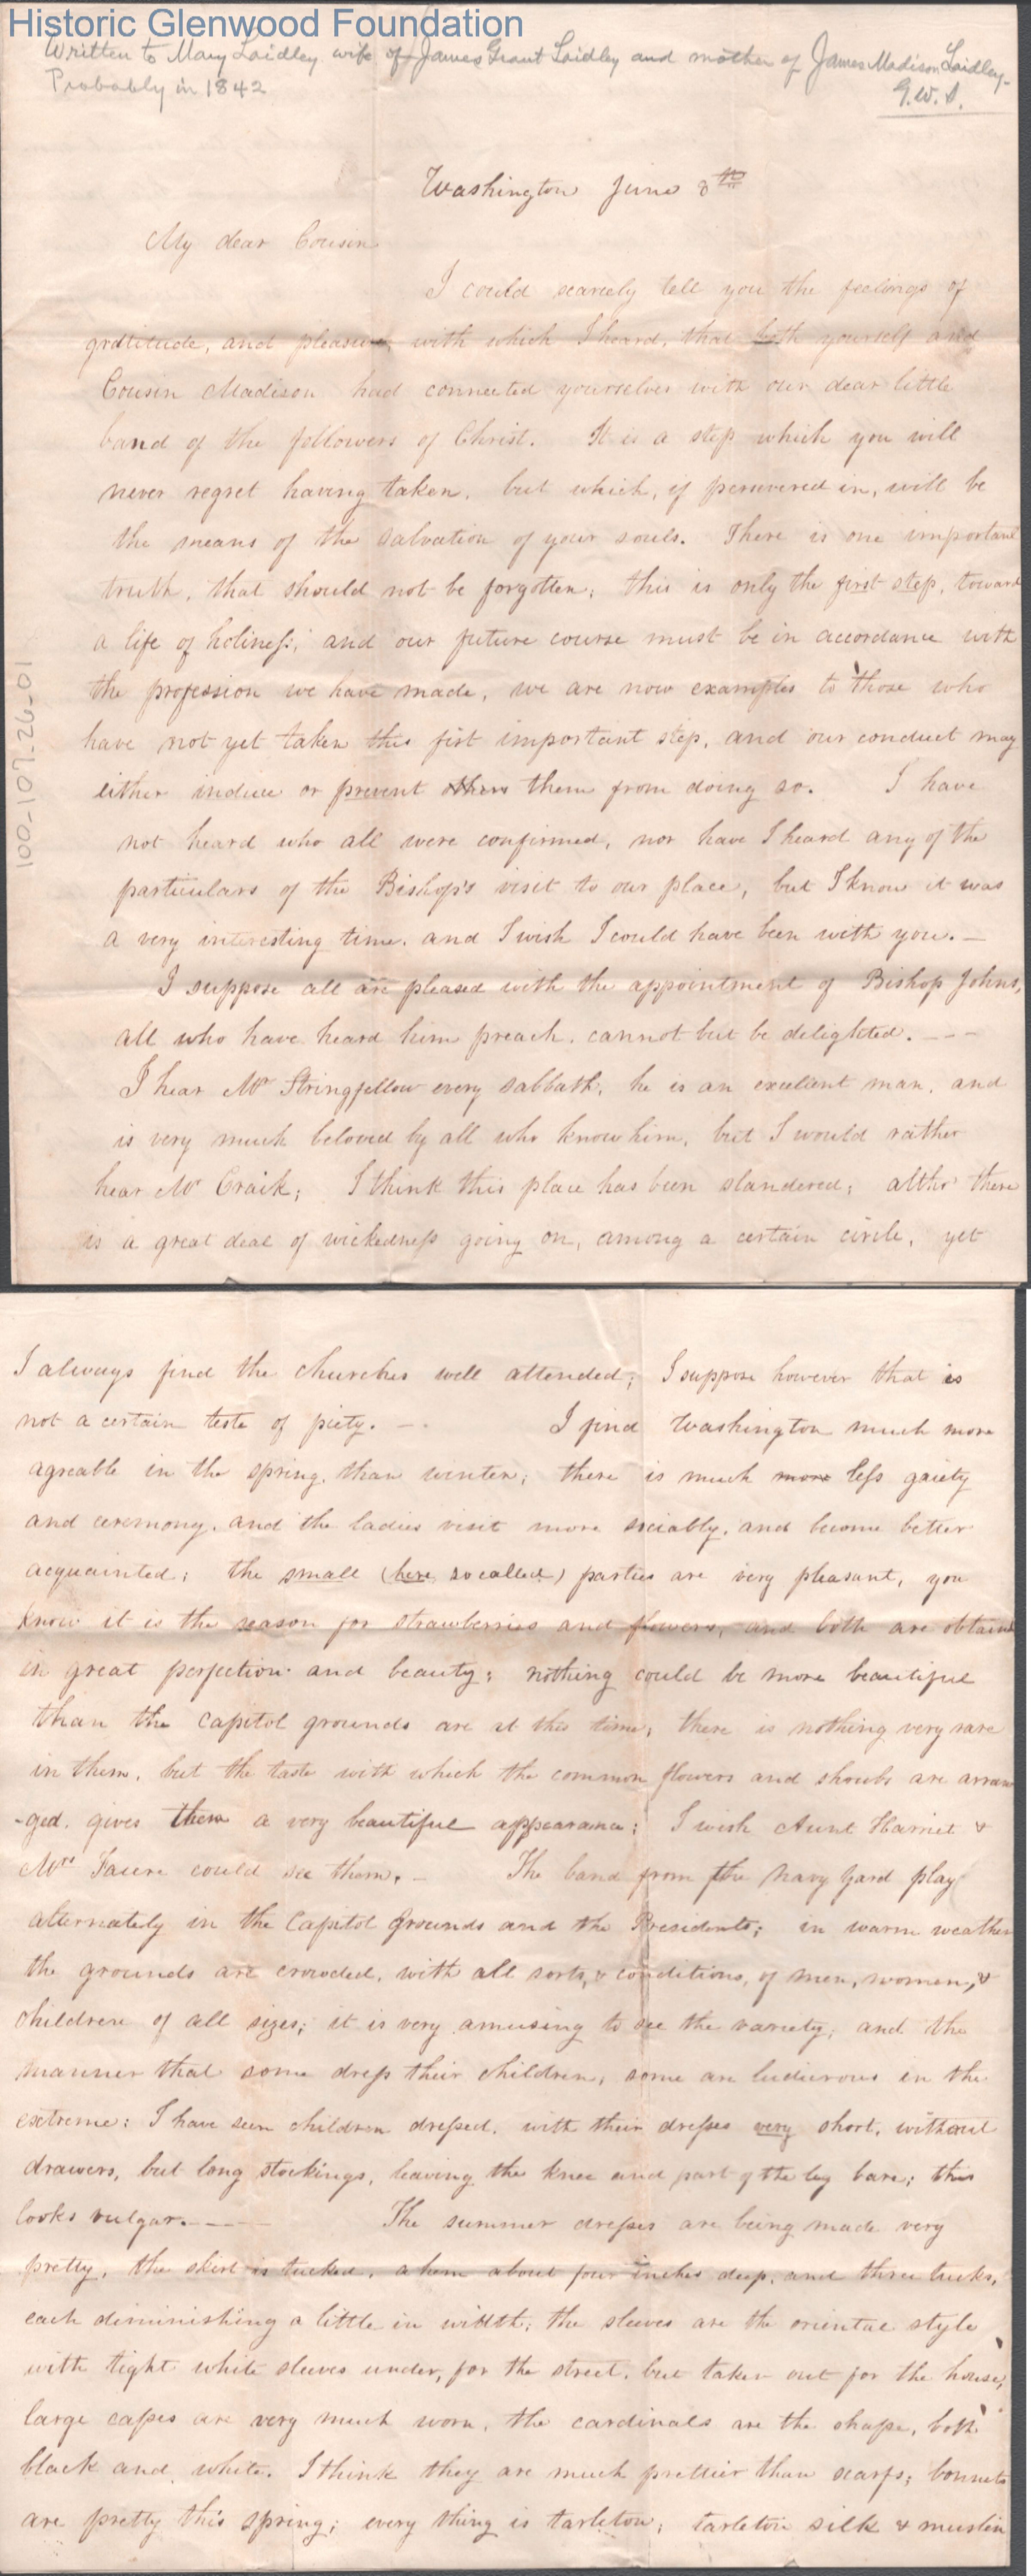 Historic Glenwood Foundation
Written to Mary Laidley wife of James Grant Laidley and mother of James Madison Laidley-
Probably in 1842
G.W.S.
100-107-26-01
Washington June 8th
My dear Cousin
I could scarcely tell you the feelings of
gratitude, and pleasure, with which I heard, that both yourself and
Cousin Madison had connected yourselves with our dear little
band of the followers of Christ. It is a step which you will
never regret having taken, but which, if persevered in, will be
the means of the salvation of your souls. There is one important
truth, that should not be forgotten; this is only the first step, toward
a life of holiness; and our future course must be in accordance with
the profession we have made, we are now examples to those who
have not yet taken this first important step, and our conduct may
either induce or prevent others them from doing so. I have
not heard who all were confirmed, nor have I heard any of the
particulars of the Bishop's visit to our place, but I know it was
a very interesting time, and I wish I could have been with you. —
I suppose all are pleased with the appointment of Bishop Johns,
all who have heard him preach, cannot but be delighted. - - -
I hear Mr Stringfellow every sabbath, he is an excellent man, and
is very much beloved by all who know him, but I would rather
hear Mr Craik; I think this place has been slandered; altho' there
is a great deal of wickedness going on, among a certain circle, yet
I always find the churches well attended; I suppose however that is
not a certain teste of piety. - - I find Washington much more
agreable in the spring, than winter; there is much more less gaiety
and ceremony, and the ladies visit more sociably, and become better
acquainted; the small (here so called) parties are very pleasant, you
know it is the season for strawberries and flowers, and both are obtained
in great perfection and beauty; nothing could be more beautiful
than the capitol grounds are at this time, there is nothing very rare
in them, but the taste with which the common flowers and shrubs are arran
-ged, gives them a very beautiful appearance; I wish Aunt Harriet &
Mrs could see them. - The band from the Navy Yard play
alternately in the Capitol Grounds and the Presidents; in warm weather
the grounds are crowded, with all sorts, & conditions, of men, women, &
children of all sizes; it is very amusing to see the variety, and the
manner that some dress their children, some are ludicrous in the
extreme; I have seen children dressed, with their dresses very short, without
drawers, but long stockings, leaving the knee and part of the leg bare; this
looks vulgar. - - - The summer dresses are being made very
pretty, the skirt is tucked, a hem about four inches deep, and three tucks,
each diminishing a little in width; the sleeves are the oriental style
with tight white sleeves under, for the street, but taken out for the house;
large capes are very much worn, the cardinals are the shape, both
black and white. I think they are much prettier than scarfs; bonnets
are pretty this spring; every thing is tarleton; tarleton silk & muslin